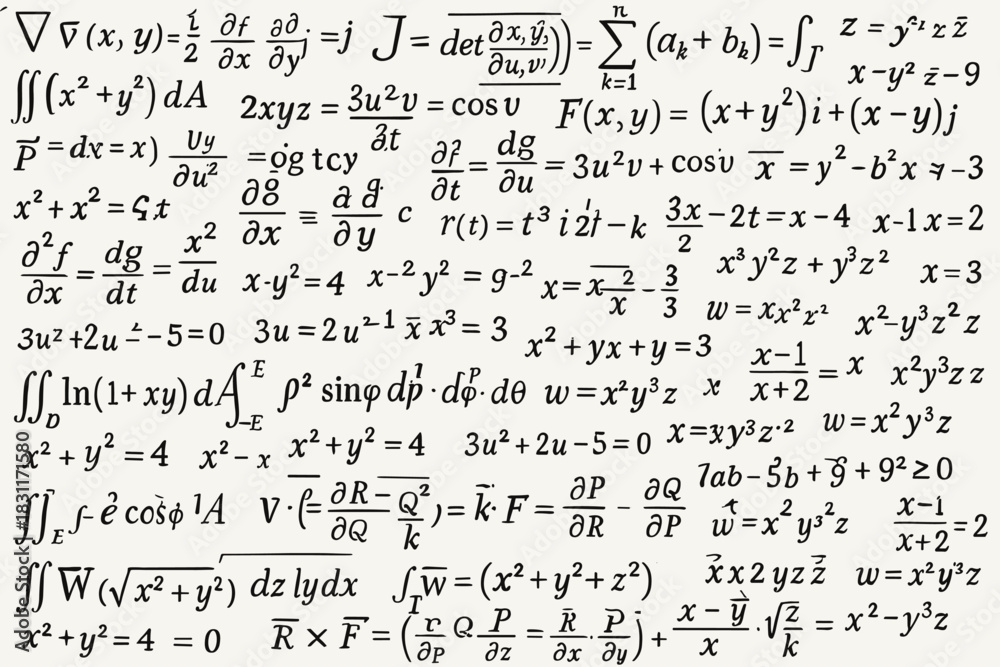 ∇ ∇̄(x, y)= 1/2 ∂f/∂x ∂∂/∂y =j J= det ∂x,ȳ,/∂u,v)) = ∑ n k=1 (aₖ + bₖ) = ∫ z = y z z̄
x − y² z̄ − 9
∬(x² + y²) dA 2xyz = 3u²v/∂t = cos v F(x, y) = (x + y²)i + (x − y)j
P̄ = dx = x) Uy/∂u² = og tcy ∂f/∂t = dg/∂u = 3u²v + cosv x̄ = y² − b²x − 3
x² + x² = t ∂g/∂x ≡ ∂ g/∂y c r(t) = t³ i 2t − k 3x/2 − 2t = x − 4 x-1 x = 2
∂²f/∂x = dg/dt = x²/du x-y² = 4 x⁻² y² = g⁻² x = x 2/x − 3/3 x³y²z + y³z² x = 3
w = xx²x² x²−y³z²z
3u² + 2u − 5 = 0 3u = 2u²⁻¹ x̄ x³ = 3 x² + yx + y = 3 x−1/x+2 = x x²y³zz
∬D ln(1+ xy) dA ∫ E −E ρ² sinφ dp · dφ · dθ w = x²y³z x w = x²y³z
x² + y² = 4 x² − x x² + y² = 4 3u² + 2u − 5 = 0 x = xy³z·²
7ab − 5b + 9 + 9² ≥ 0
∬E e² cosφ ¹A V · ( = ∂R − Q²/∂Q k ) = k̄· F = ∂P/∂R − ∂Q/∂P w = x² y³² z x−1/x+2 = 2
∬ W̄ (√x² + y²) dz lydx ∫T w̄ = (x² + y² + z²) x⃗ x 2 yz z⃗ w = x²y³z
x² + y² = 4 = 0 R̄ × F̄ = (r/∂P Q P/∂z = R̄/∂x · P̄/∂y) + x − y⃗/x · √z/k = x² − y³z
Adobe Stock | #1831171580